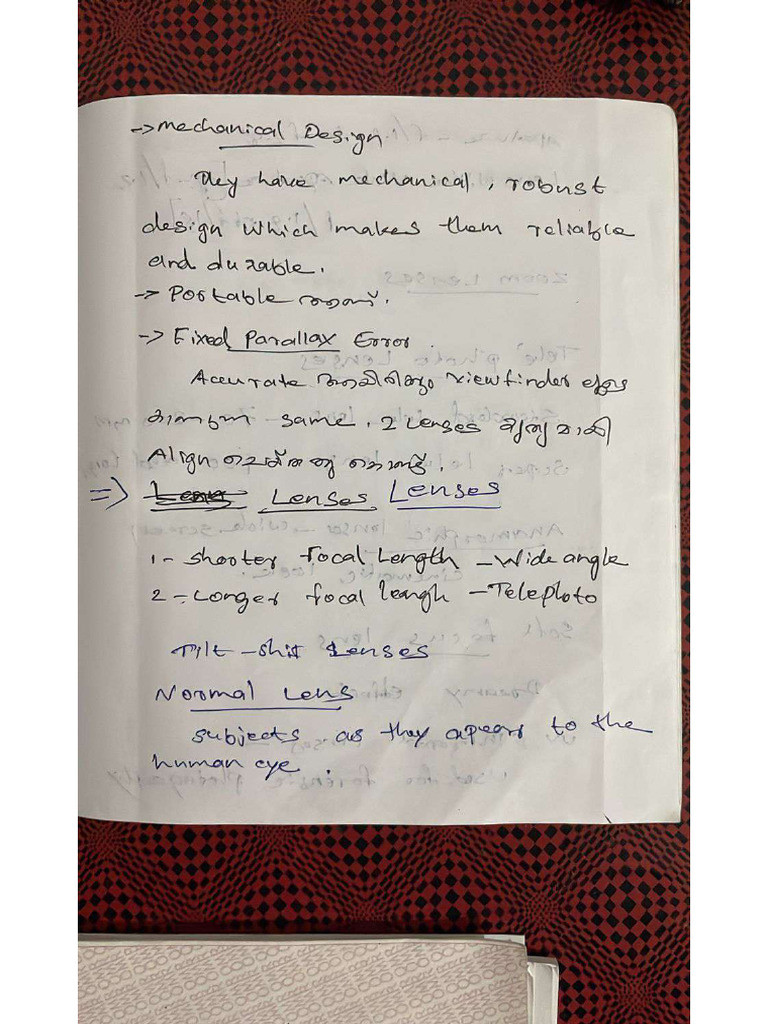 -> Mechanical Design
They have mechanical, robust
design which makes them reliable
and durable.
-> Portable ആണ്.
-> Fixed Parallax Error.
Accurate ആയിരിക്കും viewfinder
കാണുന്ന same. 2 Lenses കൃത്യമായി
Align ചെയ്തതു കൊണ്ട്.
=> Lenses Lenses
1- shooter focal Length - Wide angle
2-. Longer focal leangh - Teleploto
Tilt -shit Lenses
Normal Lens
subjects as they apears to the
human eye.